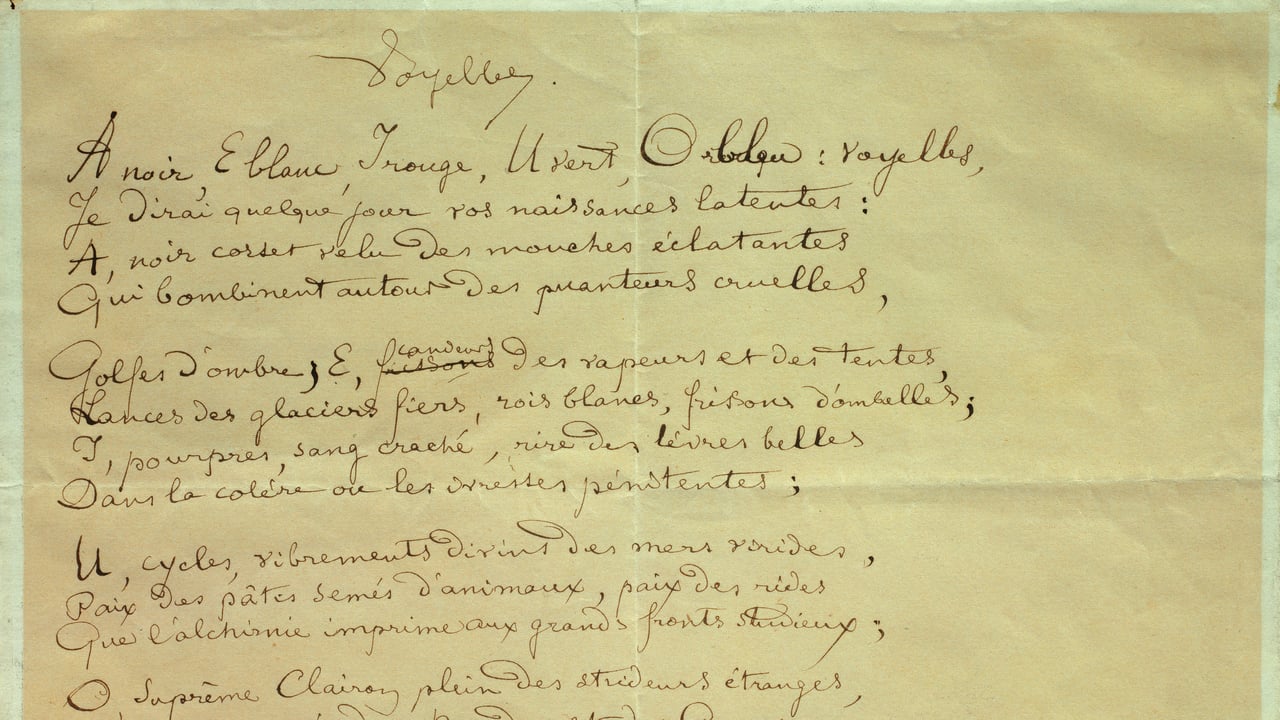 Voyelles.
A noir, E blanc, I rouge, U vert, O bleu : voyelles,
Je dirai quelque jour vos naissances latentes :
A, noir corset velu des mouches éclatantes
Qui bombinent autour des puanteurs cruelles,
candeurs
Golfes d'ombre ; E, frissons des vapeurs et des tentes,
Lances des glaciers fiers, rois blancs, frissons d'ombelles ;
I, pourpres, sang craché, rire des lèvres belles
Dans la colère ou les ivresses pénitentes ;
U, cycles, vibrements divins des mers virides,
Paix des pâtis semés d'animaux, paix des rides
Que l'alchimie imprime aux grands fronts studieux ;
O, Suprême Clairon plein des strideurs étranges,